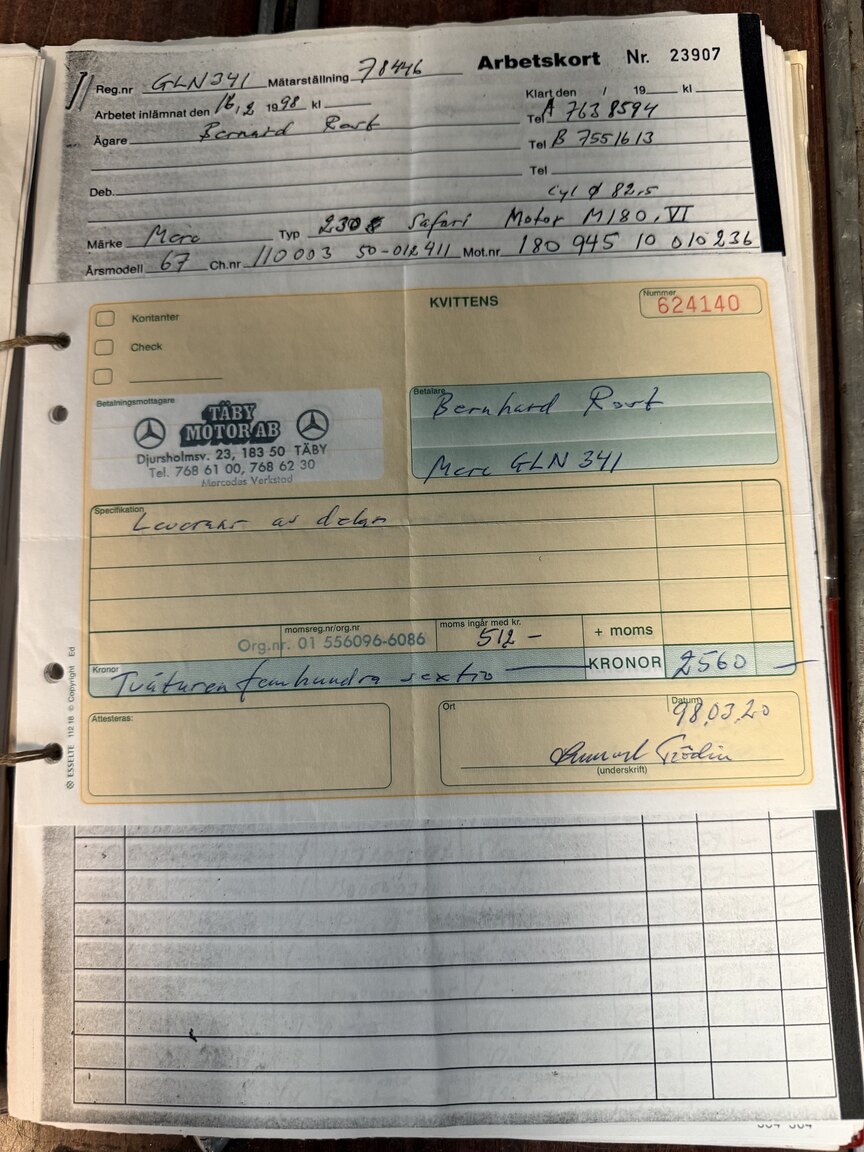 Arbetskort Nr. 23907
Reg.nr GLN 341 Mätarställning 78446
Klart den / 19 kl
Arbetet inlämnat den 16,2 1998 kl
Tel A 763 8594
Ägare Bernard
Tel B 7551613
Tel
Deb.
Cyl ø 82,5
Märke Merc Typ 230 S Safari Motor M180.VI
Årsmodell 67 Ch.nr 110 003 50-012411 Mot.nr 180 945 10 010236
KVITTENS
Nummer
624140
Kontanter
Check
Betalningsmottagare
TÄBY
MOTOR AB
Djursholmsv. 23, 183 50 TÄBY
Tel. 768 61 00, 768 62 30
Mercedes Verkstad
Betalare
Bernhard
Merc GLN 341
Specifikation
av delar
momsreg.nr/org.nr
Org.nr. 01 556096-6086
moms ingår med kr.
512 -
+ moms
Kronor
Tvåtusen femhundra sextio
KRONOR 2560 -
Attesteras:
Ort
Datum
98.03.20
(underskrift)
ESSELTE 112 18 © Copyright Ed